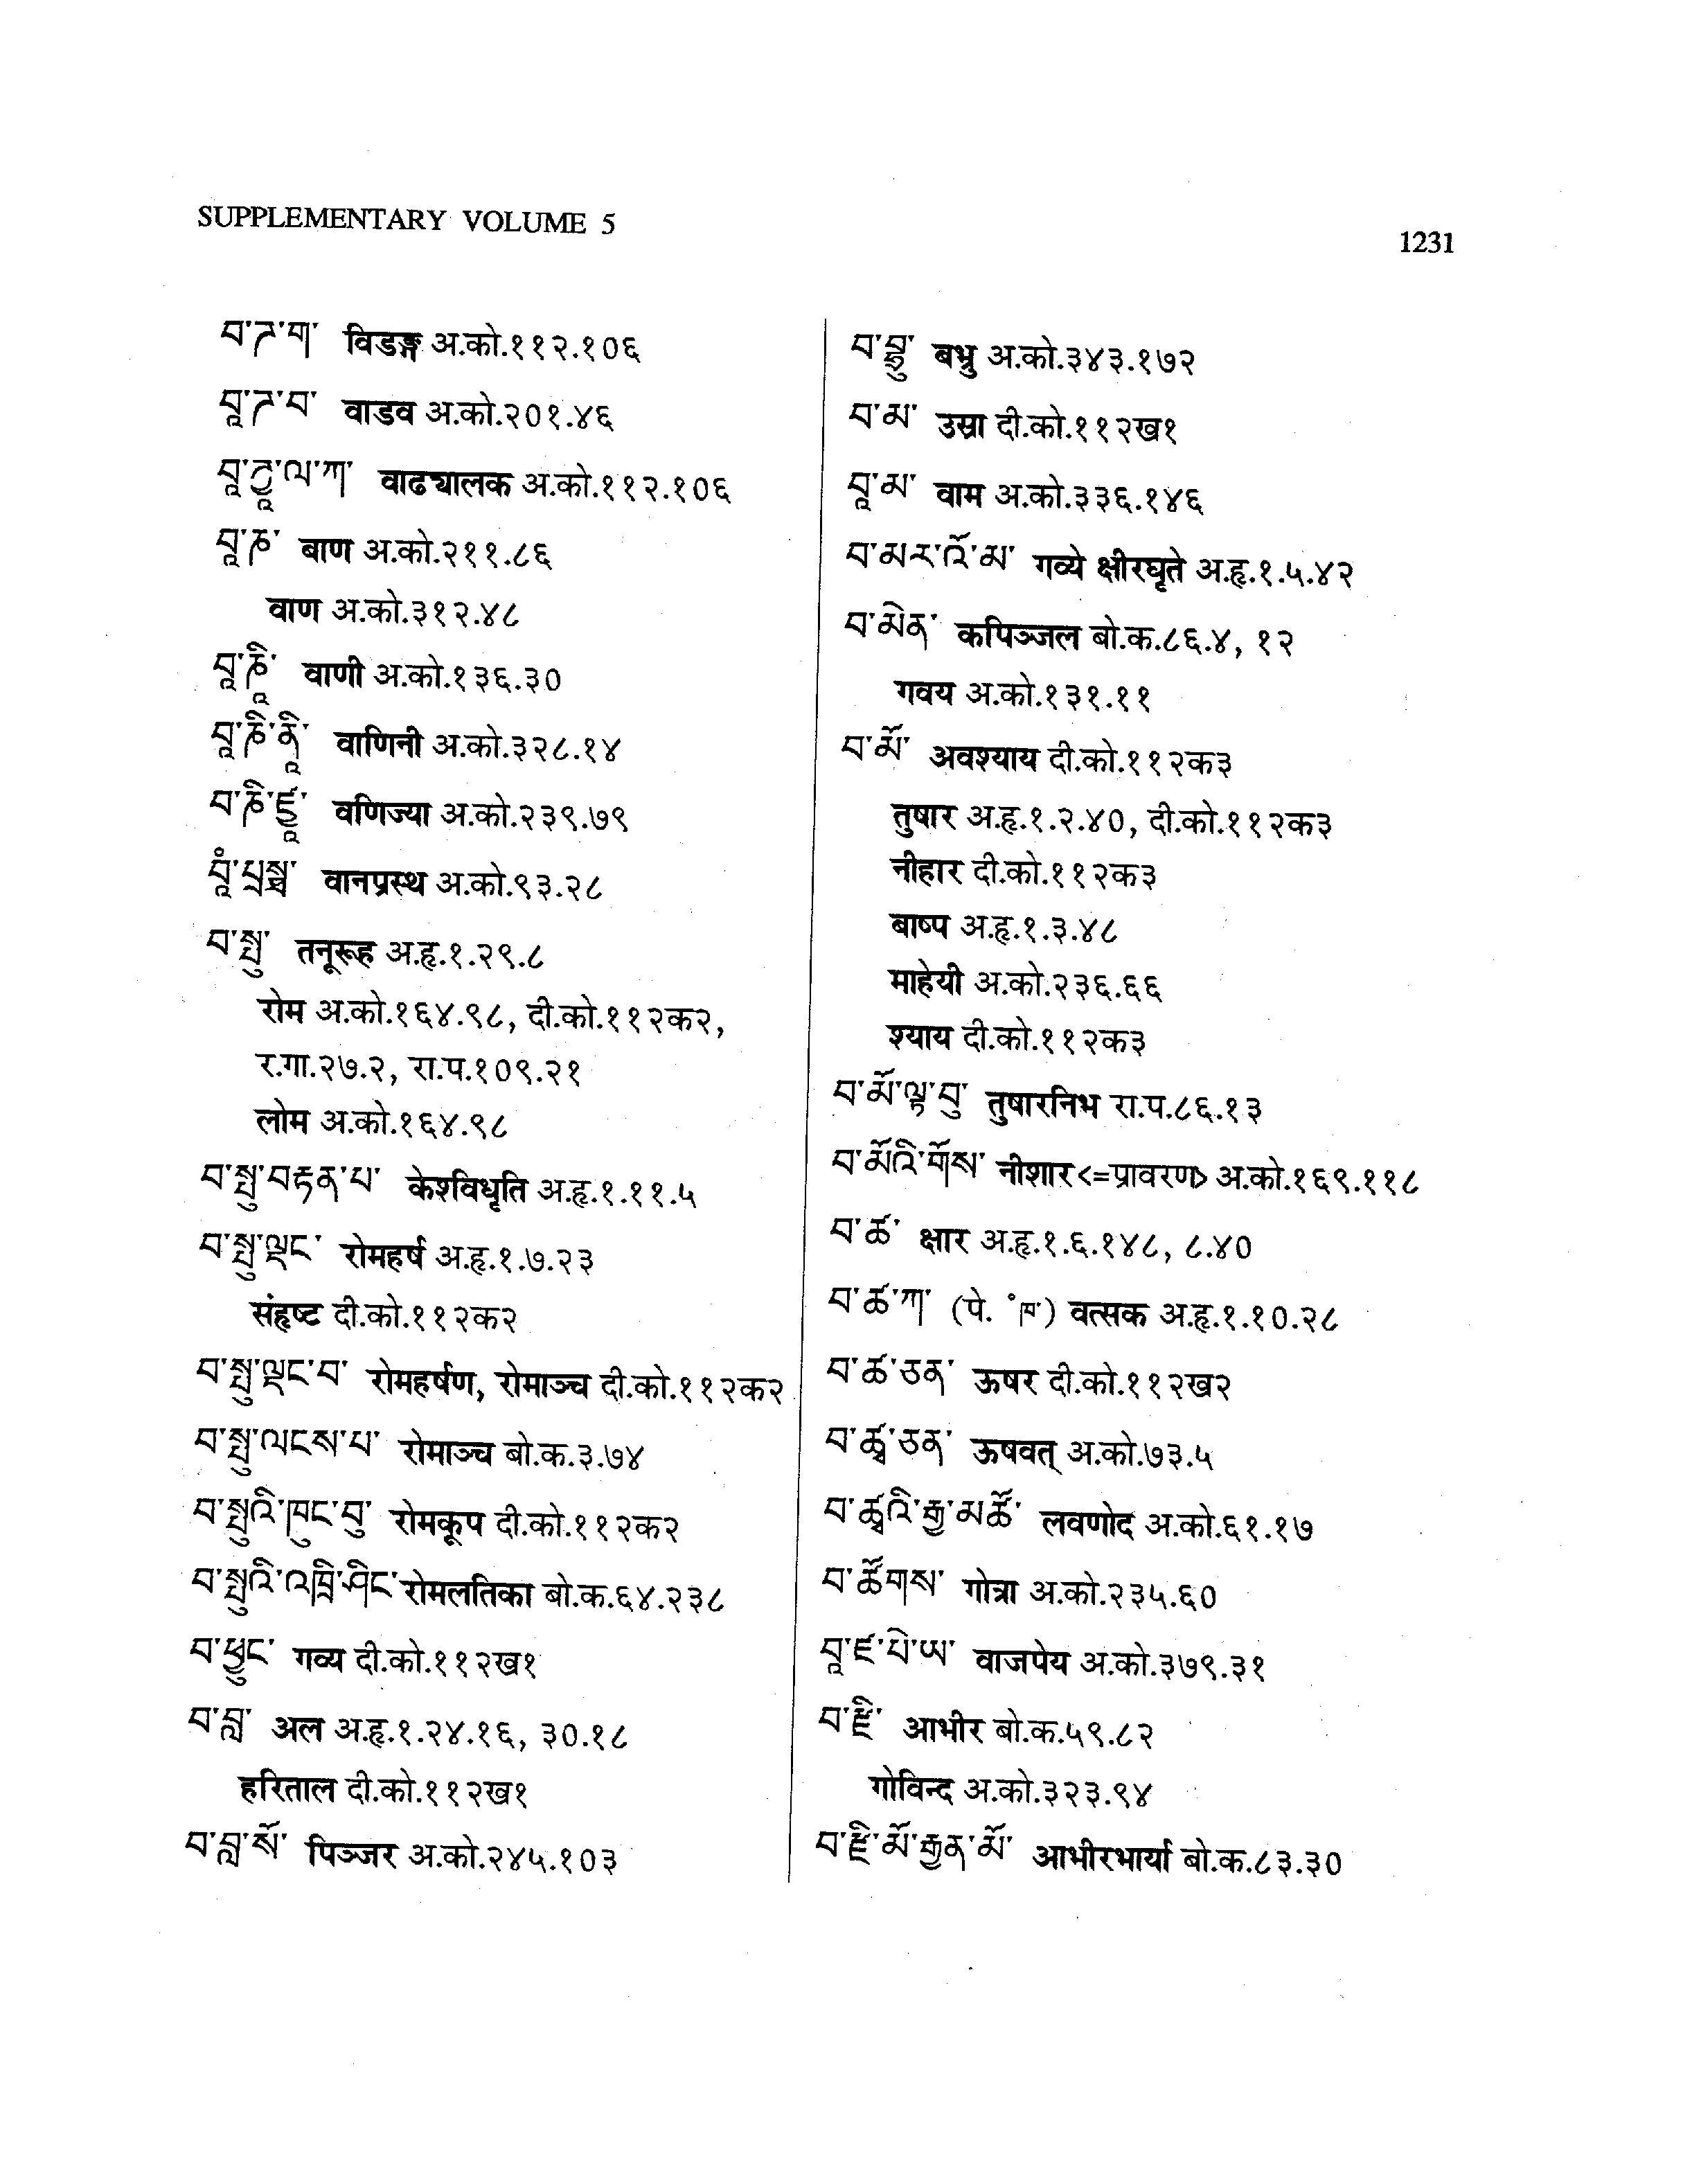 SUPPLEMENTARY VOLUME 5
1231
བ་ཌ་ག་ विडङ्ग अ.को.११२.१०६
བཱ་ཌ་བ་ वाडव अ.को.२०१.४६
བཱ་ཊྱཱ་ལ་ཀ་ वाढ्यालक अ.को.११२.१०६
བཱ་ཎ་ बाण अ.को.२११.८६
वाण अ.को.३१२.४८
བཱ་ཎཱི་ वाणी अ.को.१३६.३०
བཱ་ཎི་ནཱི་ वाणिनी अ.को.३२८.१४
བ་ཎི་ཛྱཱ་ वणिज्या अ.को.२३९.७९
བཱཾ་པྲསྠ་ वानप्रस्थ अ.को.९३.२८
བ་སྤུ་ तनूरूह अ.हृ.१.२९.८
रोम अ.को.१६४.९८, दी.को.११२क२,
र.गा.२७.२, रा.प.१०९.२१
लोम अ.को.१६४.९८
བ་སྤུ་བརྟན་པ་ केशविधृति अ.हृ.१.११.५
བ་སྤུ་ལྡང་ रोमहर्ष अ.हृ.१.७.२३
संहृष्ट दी.को.११२क२
བ་སྤུ་ལྡང་བ་ रोमहर्षण, रोमाञ्च दी.को.११२क२
བ་སྤུ་ལངས་པ་ रोमाञ्च बो.क.३.७४
བ་སྤུའི་ཁུང་བུ་ रोमकूप दी.को.११२क२
བ་སྤུའི་འཁྲི་ཤིང་ रोमलतिका बो.क.६४.२३८
བ་ཕྱུང་ गव्य दी.को.११२ख१
བ་བླ་ अल अ.हृ.१.२४.१६, ३०.१८
हरिताल दी.को.११२ख१
བ་བླ་སོ་ पिञ्जर अ.को.२४५.१०३
བ་བྷྲུ་ बभ्रु अ.को.३४३.१७२
བ་མ་ उस्रा दी.को.११२ख१
བཱ་མ་ वाम अ.को.३३६.१४६
བ་མར་འོ་མ་ गव्ये क्षीरघृते अ.हृ.१.५.४२
བ་མེན་ कपिञ्जल बो.क.८६.४, १२
गवय अ.को.१३१.११
བ་མོ་ अवश्याय दी.को.११२क३
तुषार अ.हृ.१.२.४०, दी.को.११२क३
नीहार दी.को.११२क३
बाष्प अ.हृ.१.३.४८
माहेयी अ.को.२३६.६६
श्याय दी.को.११२क३
བ་མོ་ལྟ་བུ་ तुषारनिभ रा.प.८६.१३
བ་མོའི་གོས་ नीशार<=प्रावरण> अ.को.१६९.११८
བ་ཚ་ क्षार अ.हृ.१.६.१४८, ८.४०
བ་ཚ་ཀ་ (पे. ° ཁ་) वत्सक अ.हृ.१.१०.२८
བ་ཚ་ཅན་ ऊषर दी.को.११२ख२
བ་ཚྭ་ཅན་ ऊषवत् अ.को.७३.५
བ་ཚྭའི་རྒྱ་མཚོ་ लवणोद अ.को.६१.१७
བ་ཚོགས་ गोत्रा अ.को.२३५.६०
བཱ་ཛ་པེ་ཡ་ वाजपेय अ.को.३७९.३१
བ་རྫི་ आभीर बो.क.५९.८२
गोविन्द अ.को.३२३.९४
བ་རྫི་མོ་རྒྱན་མོ་ आभीरभार्या बो.क.८३.३०